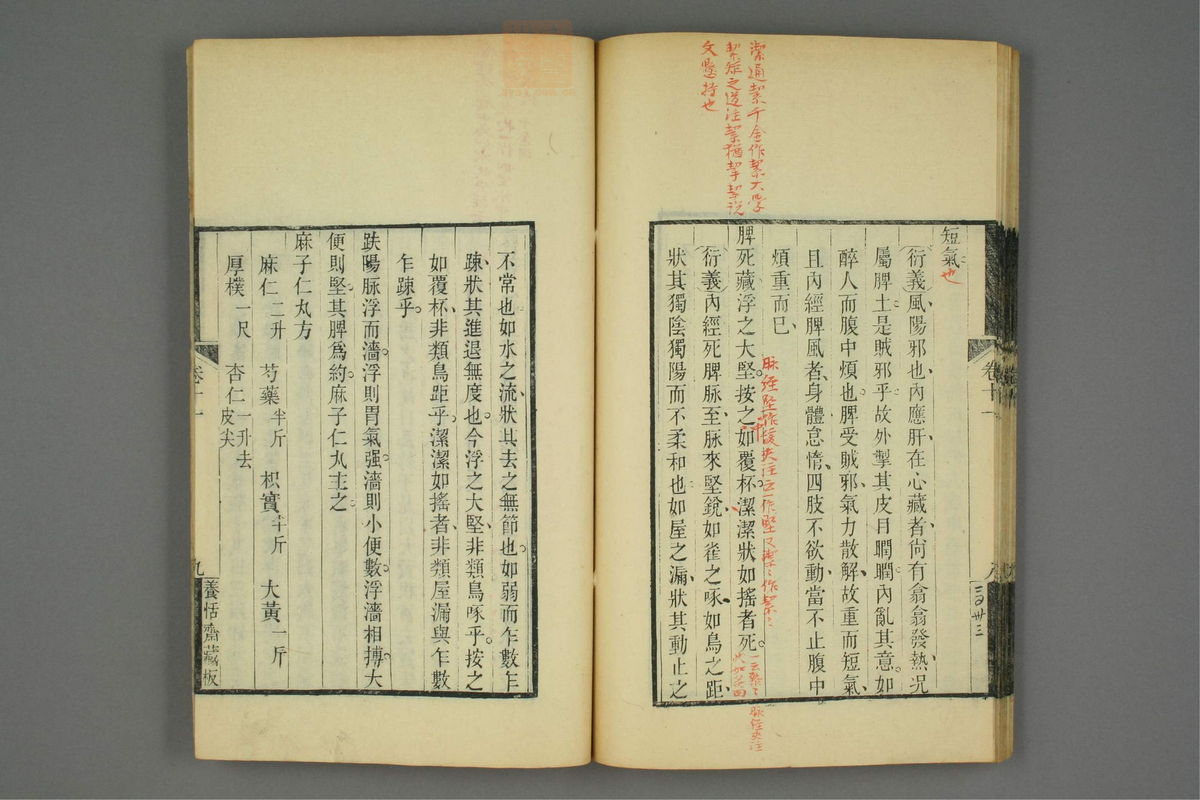 潔通絜千金作絜大學
絜矩之道注絜猶挈挈説
文懸持也
短氣也
衍義風陽邪也內應肝在心藏者尙有翕翕發熱况
屬脾土是賊邪乎故外掣其皮目瞤瞤內亂其意如
醉人而腹中煩也脾受賊邪氣力散解故重而短氣
且內經脾風者身體怠惰四肢不欲動當不止腹中
煩重而已
脾死藏浮之大堅按之如覆杯潔潔狀如搖者死
脉經堅作緩夾注云一作堅又潔〻作絜〻
衍義內經死脾脉至脉來堅銳如雀之啄如鳥之距
狀其獨陰獨陽而不柔和也如屋之漏狀其動止之
卷十一
不常也如水之流狀其去之無節也如弱而乍數乍
踈狀其進退無度也今浮之大堅非類鳥啄乎按之
如覆杯非類鳥距乎潔潔如搖者非類屋漏與乍數
乍踈乎
趺陽脉浮而濇浮則胃氣强濇則小便數浮濇相搏大
便則堅其脾爲約麻子仁丸主之
麻子仁丸方
麻仁二升 芍藥半斤 枳實半斤 大黃一斤
厚樸一尺 杏仁一升去皮尖
卷十一 九 養恬齋藏板